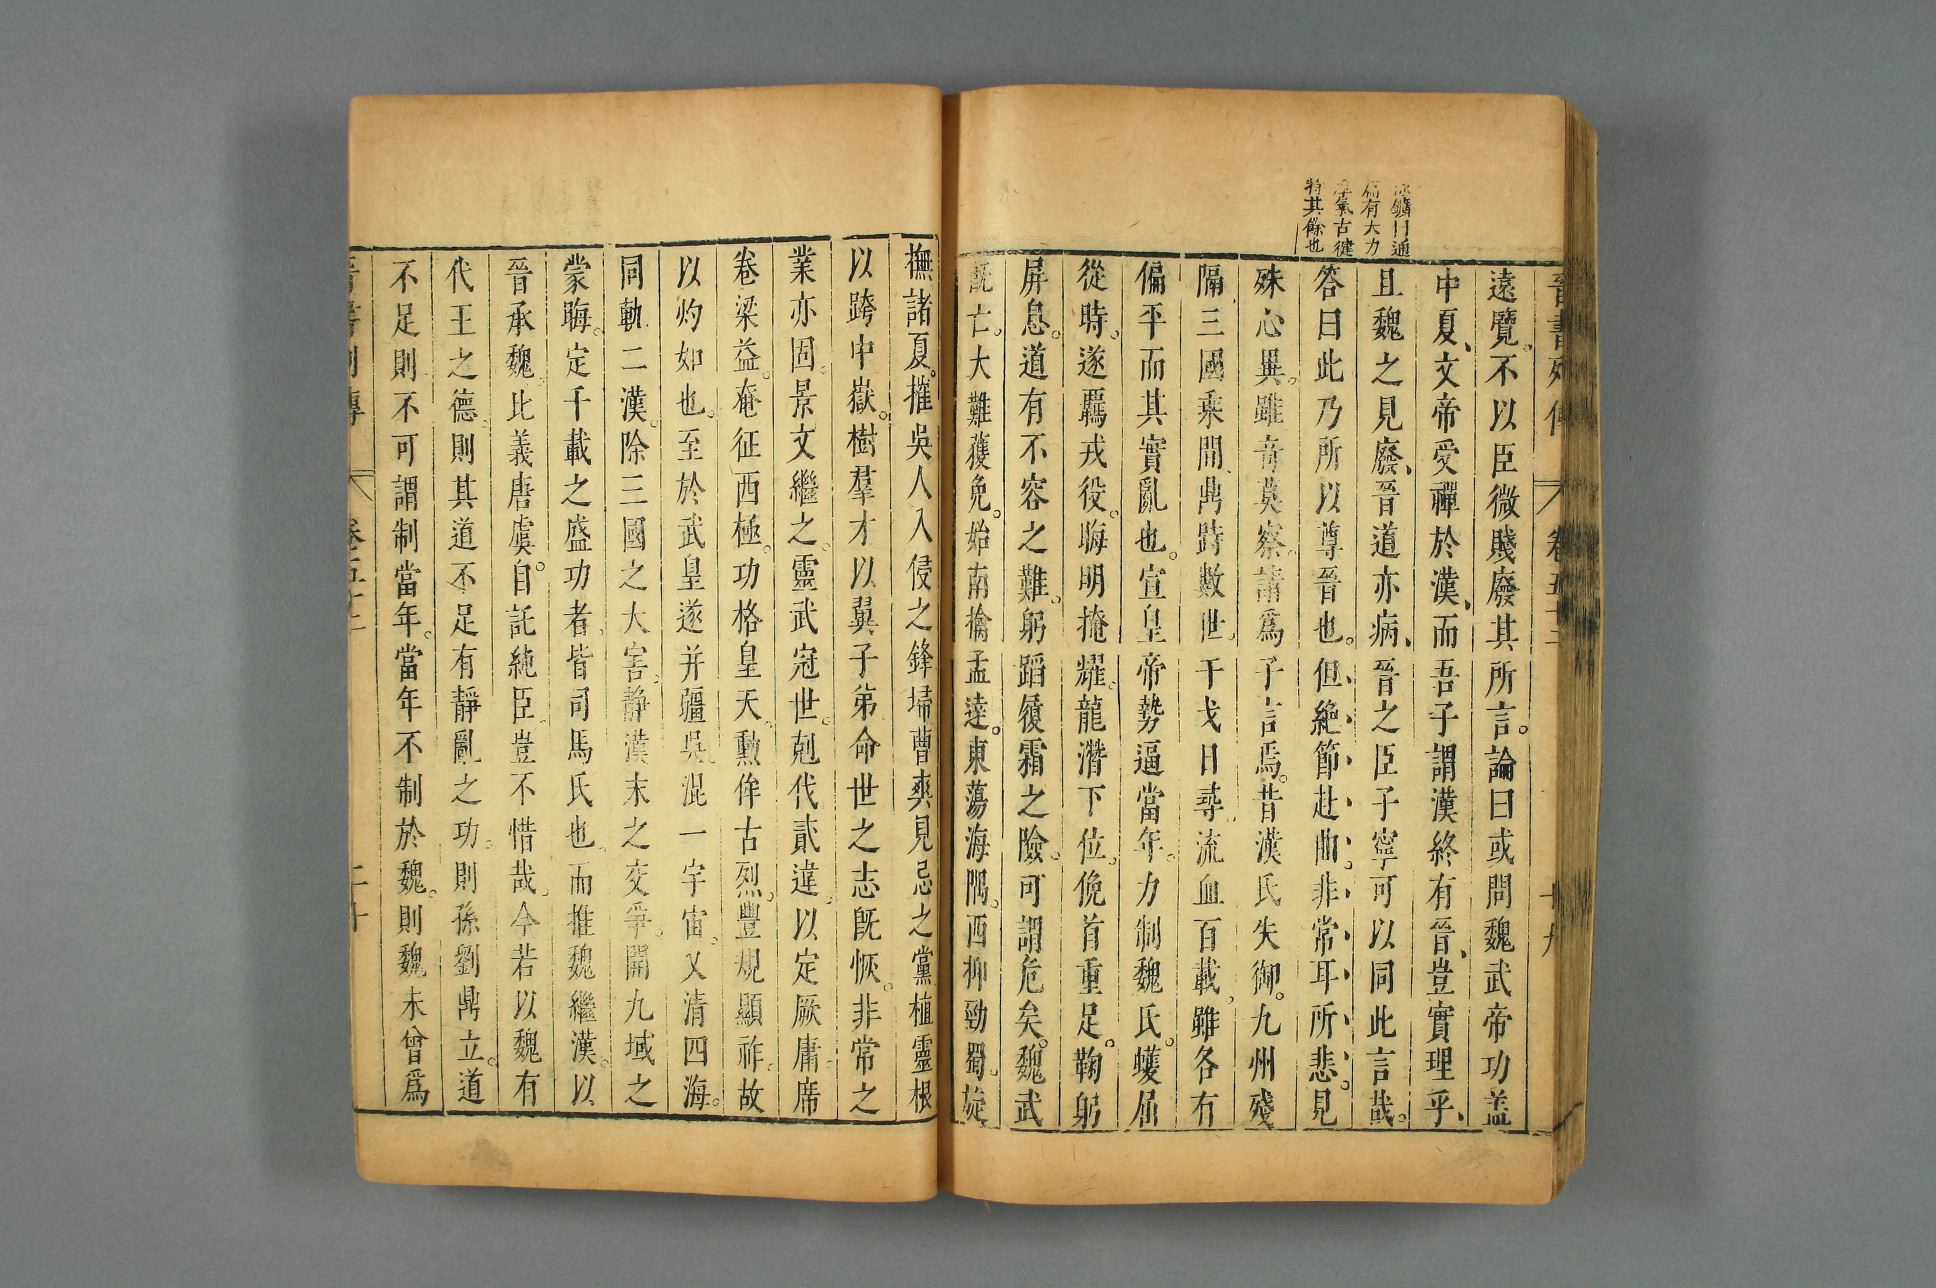 晉書列傳 卷五十二 十九
鑛日通
有大力
氣古健
特其餘也
遠覽。不以臣微賤廢其所言。論曰或問魏武帝功蓋
中夏、文帝受禪於漢、而吾子謂漢終有晉、豈實理乎、
且魏之見廢、晉道亦病、晉之臣子寧可以同此言哉。
答曰此乃所以尊晉也。但絶節赴曲。非常耳所悲。見
殊心異。雖奇莫察。請爲子言焉。昔漢氏失御。九州殘
隔三國乘間、鼎跱數世。干戈日尋、流血百載、雖各有
偏平而其實亂也。宣皇帝勢逼當年。力制魏氏。蠖屈
從時。遂羈戎役。晦明掩耀。龍潛下位。俛首重足。鞠躬
屏息。道有不容之難。躬蹈履霜之險。可謂危矣。魏武
既亡。大難獲免。始南擒孟達。東蕩海隅。西抑勁蜀。旋
撫諸夏。摧吳人入侵之鋒掃曹爽見忌之黨植靈根
以跨中嶽。樹羣才以翼子弟。命世之志既恢。非常之
業亦固。景文繼之。靈武冠世。剋伐貳違。以定厥庸。席
卷梁益。奄征西極。功格皇天。勲侔古烈。豐規顯祚。故
以灼如也。至於武皇遂并疆吳。混一宇宙。乂清四海。
同軌二漢。除三國之大害。靜漢末之交爭。開九域之
蒙晦。定千載之盛功者。皆司馬氏也。而推魏繼漢。以
晉承魏。比義唐虞。自託純臣。豈不惜哉。今若以魏有
代王之德。則其道不足有靜亂之功。則孫劉鼎立。道
不足則不可謂制當年。當年不制於魏。則魏未曾爲
晉書列傳 卷五十二 二十